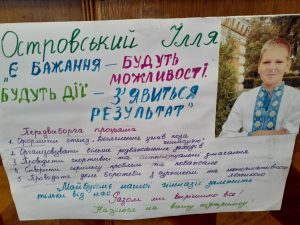 Островський Ілля
"Є БАЖАННЯ — БУДУТЬ
МОЖЛИВОСТІ.
БУДУТЬ ДІЇ - З'ЯВИТЬСЯ
РЕЗУЛЬТАТ"
Передвиборча програма
1. Оформити стенд
2. Організовувати більше розважальних заходів
3. Проводити спортивні та інтелектуальні змагання
4. Створити скриньку
5. Проводити день боротьби з
Майбутнє нашої гімназії залежить
тільки від нас.
Разом ми вирішимо все!
Надіюсь на вашу підтримку!